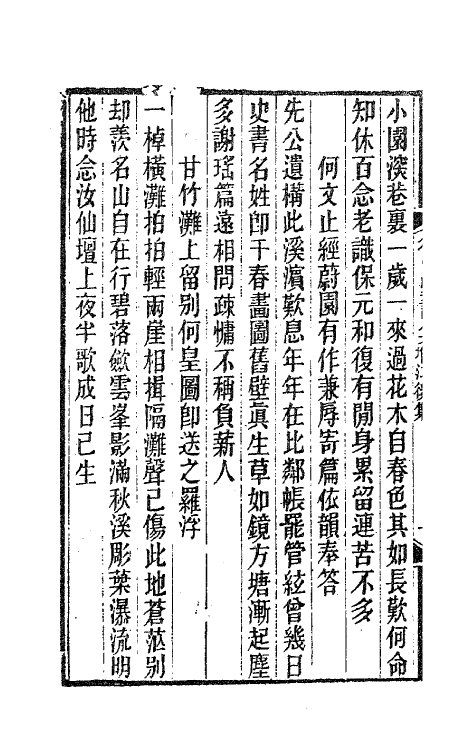 小園溪巷裏一歲一來過花木自春色其如長歎何命
知休百念老識保元和復有閒身累留連苦不多
何文止經蔚園有作兼辱寄篇依韻奉答
先公遺構此溪濱歎息年年在比鄰帳罷管絃曾幾日
史書名姓卽千春畵圖舊壁眞生草如鏡方塘漸起塵
多謝瑤篇遠相問疎慵不稱負薪人
甘竹灘上留別何皇圖卽送之羅浮
一棹橫灘拍拍輕兩崖相揖隔灘聲已傷此地蒼茫别
却羨名山自在行碧落斂雲峯影滿秋溪彫葉瀑流明
他時念汝仙壇上夜半歌成日已生